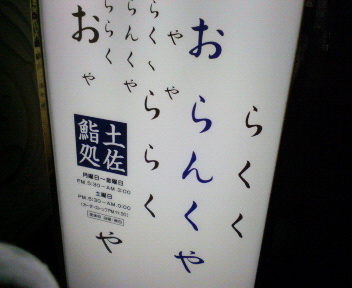 らくく
おらんくや
や
ららくや
らくく
や
らんくや
ららくや
おや
土佐
鮨処
月曜日〜金曜日
PM.5:30〜AM.3:00
土曜日
PM.5:30〜AM.0:00